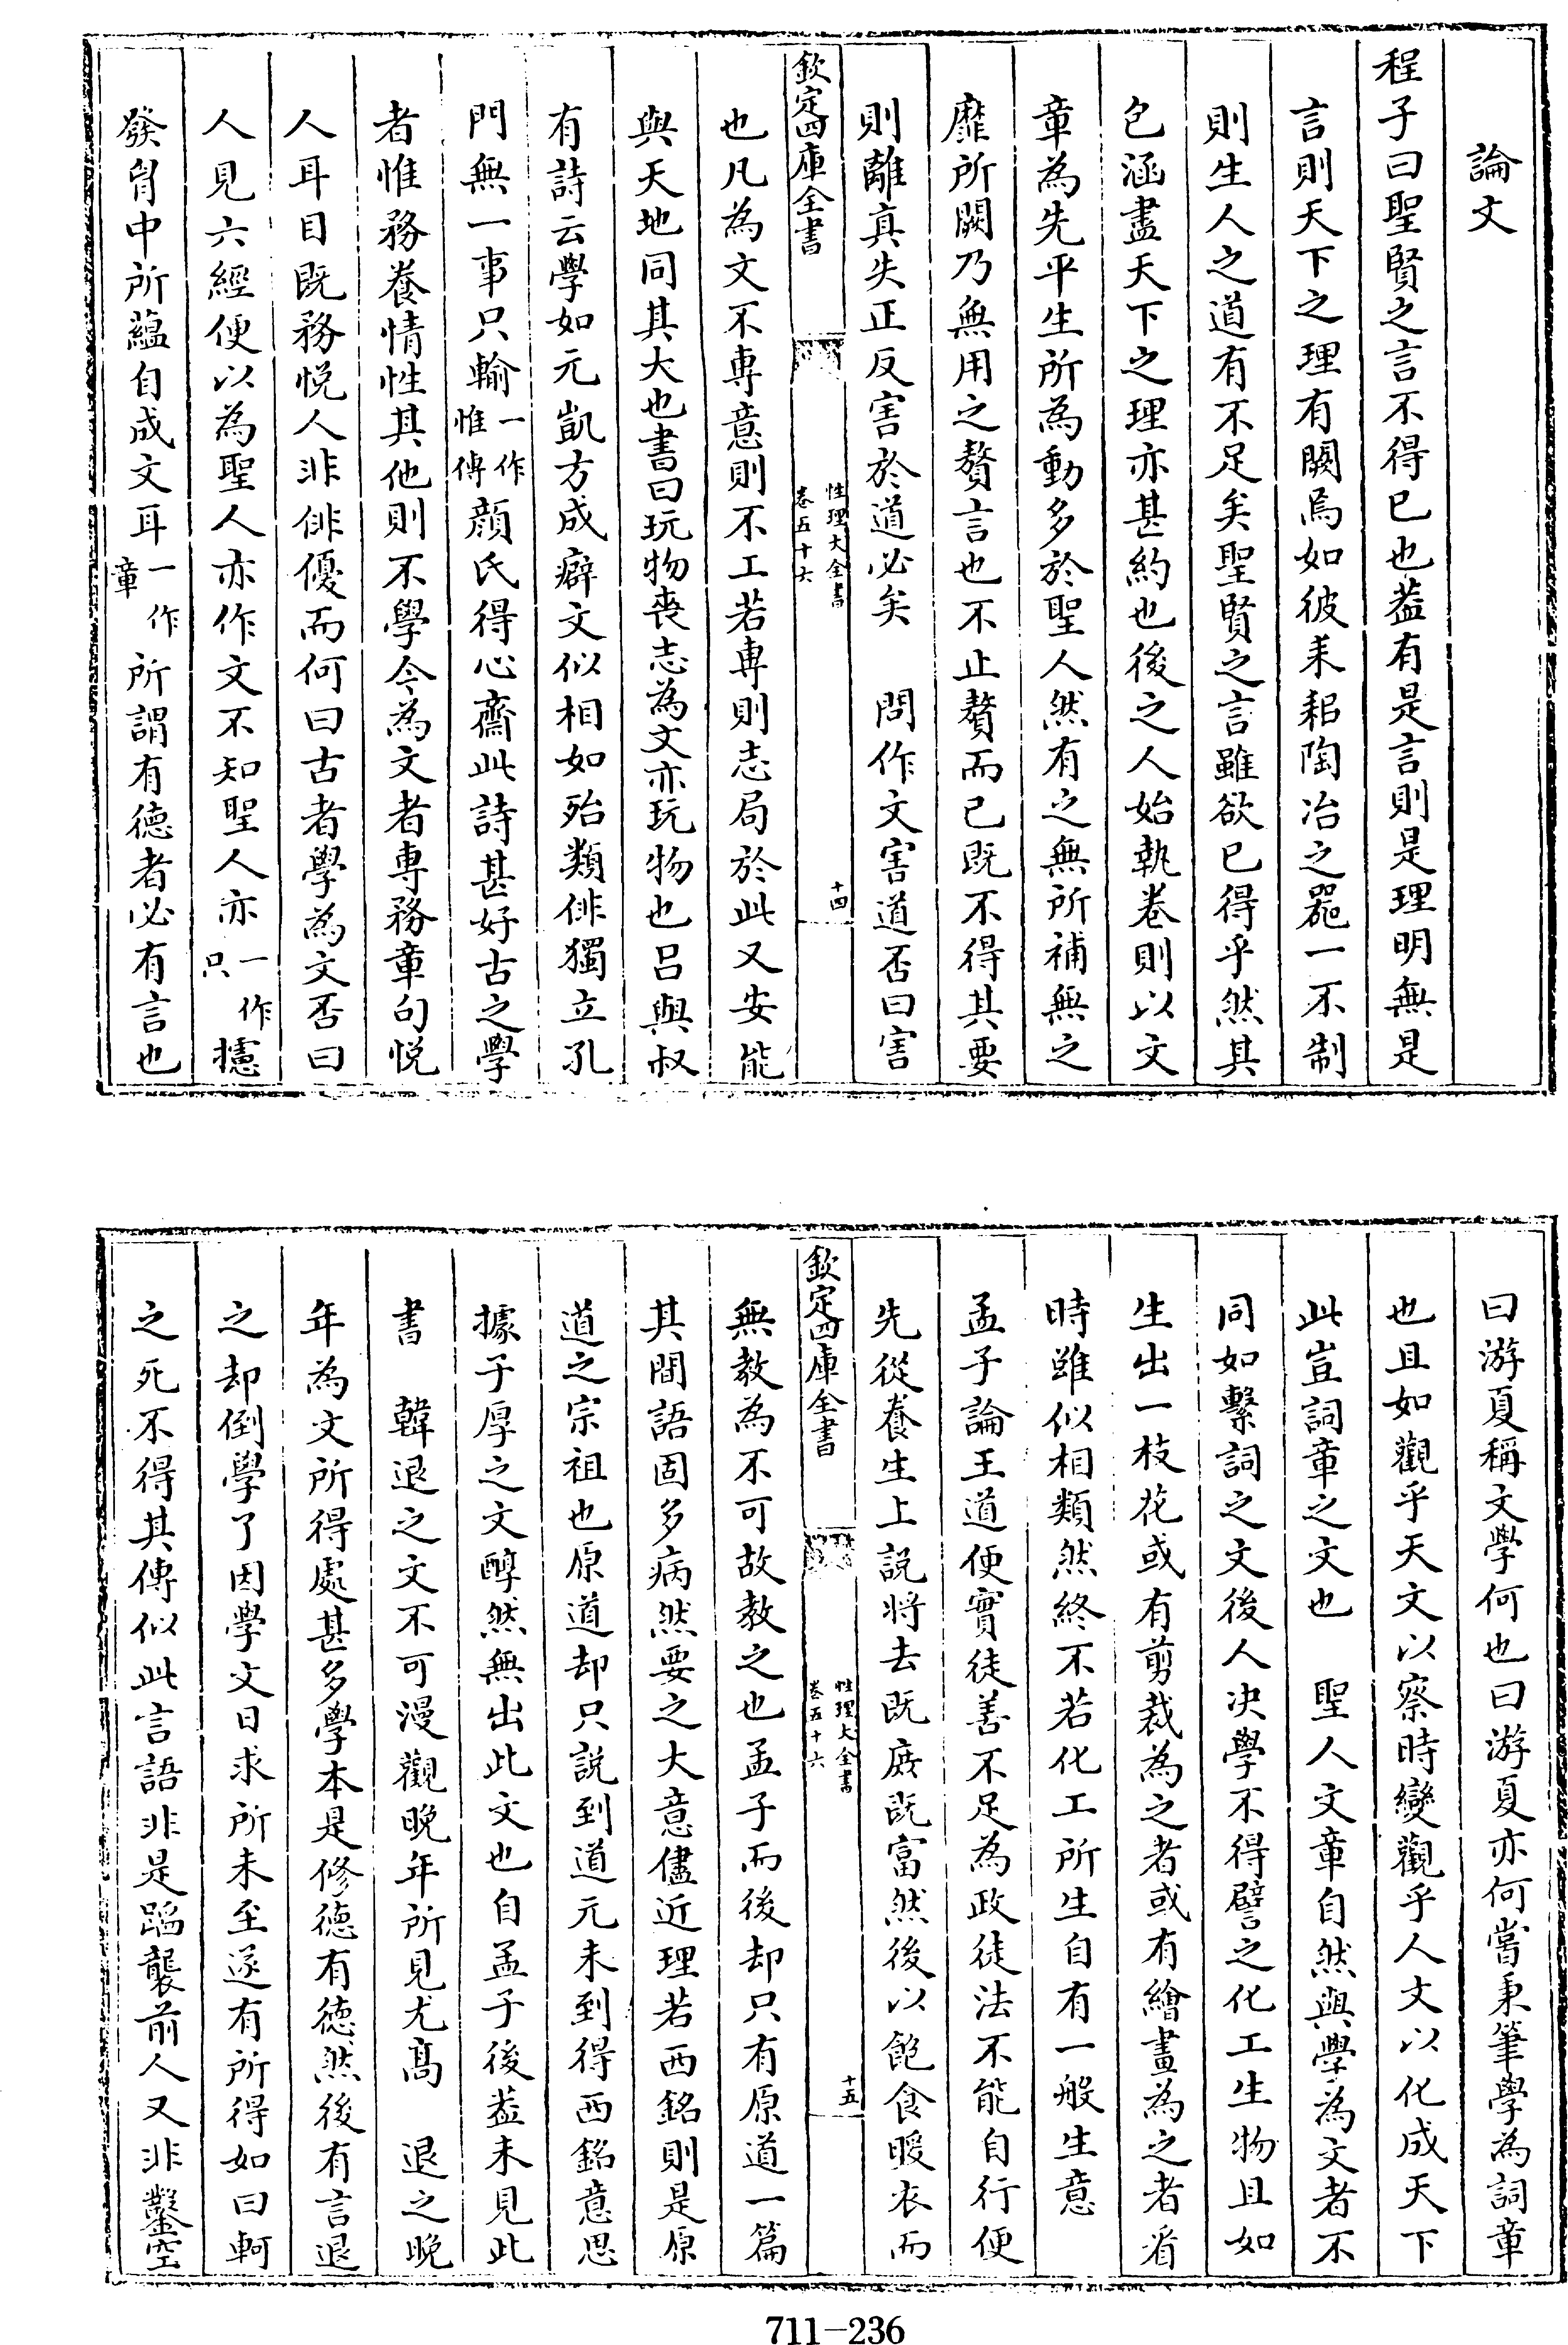 論文
程子曰聖賢之言不得已也葢有是言則是理明無是
言則天下之理有闕焉如彼耒耜陶冶之噐一不制
則生人之道有不足矣聖賢之言雖欲已得乎然其
包涵盡天下之理亦甚約也後之人始執卷則以文
章為先平生所為動多於聖人然有之無所補無之
靡所闕乃無用之贅言也不止贅而已既不得其要
則離真失正反害於道必矣　問作文害道否曰害
欽定四庫全書
性理大全書
卷五十六
十四
也凡為文不專意則不工若專則志局於此又安能
與天地同其大也書曰玩物喪志為文亦玩物也吕與叔
有詩云學如元凱方成癖文似相如殆類俳獨立孔
門無一事只輸一作惟傳顔氏得心齋此詩甚好古之學
者惟務養情性其他則不學今為文者專務章句悦
人耳目既務悦人非俳優而何曰古者學為文否曰
人見六經便以為聖人亦作文不知聖人亦一作只攄
發胷中所蘊自成文耳一作章所謂有德者必有言也
曰游夏稱文學何也曰游夏亦何嘗秉筆學為詞章
也且如觀乎天文以察時變觀乎人文以化成天下
此豈詞章之文也　聖人文章自然與學為文者不
同如繫詞之文後人决學不得譬之化工生物且如
生出一枝花或有剪裁為之者或有繪畫為之者㸔
時雖似相類然終不若化工所生自有一般生意
孟子論王道便實徒善不足為政徒法不能自行便
先從養生上説將去既庶既富然後以飽食暖衣而
欽定四庫全書
性理大全書
卷五十六
十五
無教為不可故教之也孟子而後却只有原道一篇
其間語固多病然要之大意儘近理若西銘則是原
道之宗祖也原道却只説到道元未到得西銘意思
據子厚之文醇然無出此文也自孟子後葢未見此
書　韓退之文不可漫觀晚年所見尤髙　退之晚
年為文所得處甚多學本是修德有德然後有言退
之却倒學了因學文日求所未至遂有所得如曰軻
之死不得其傳似此言語非是蹈襲前人又非鑿空
711-236